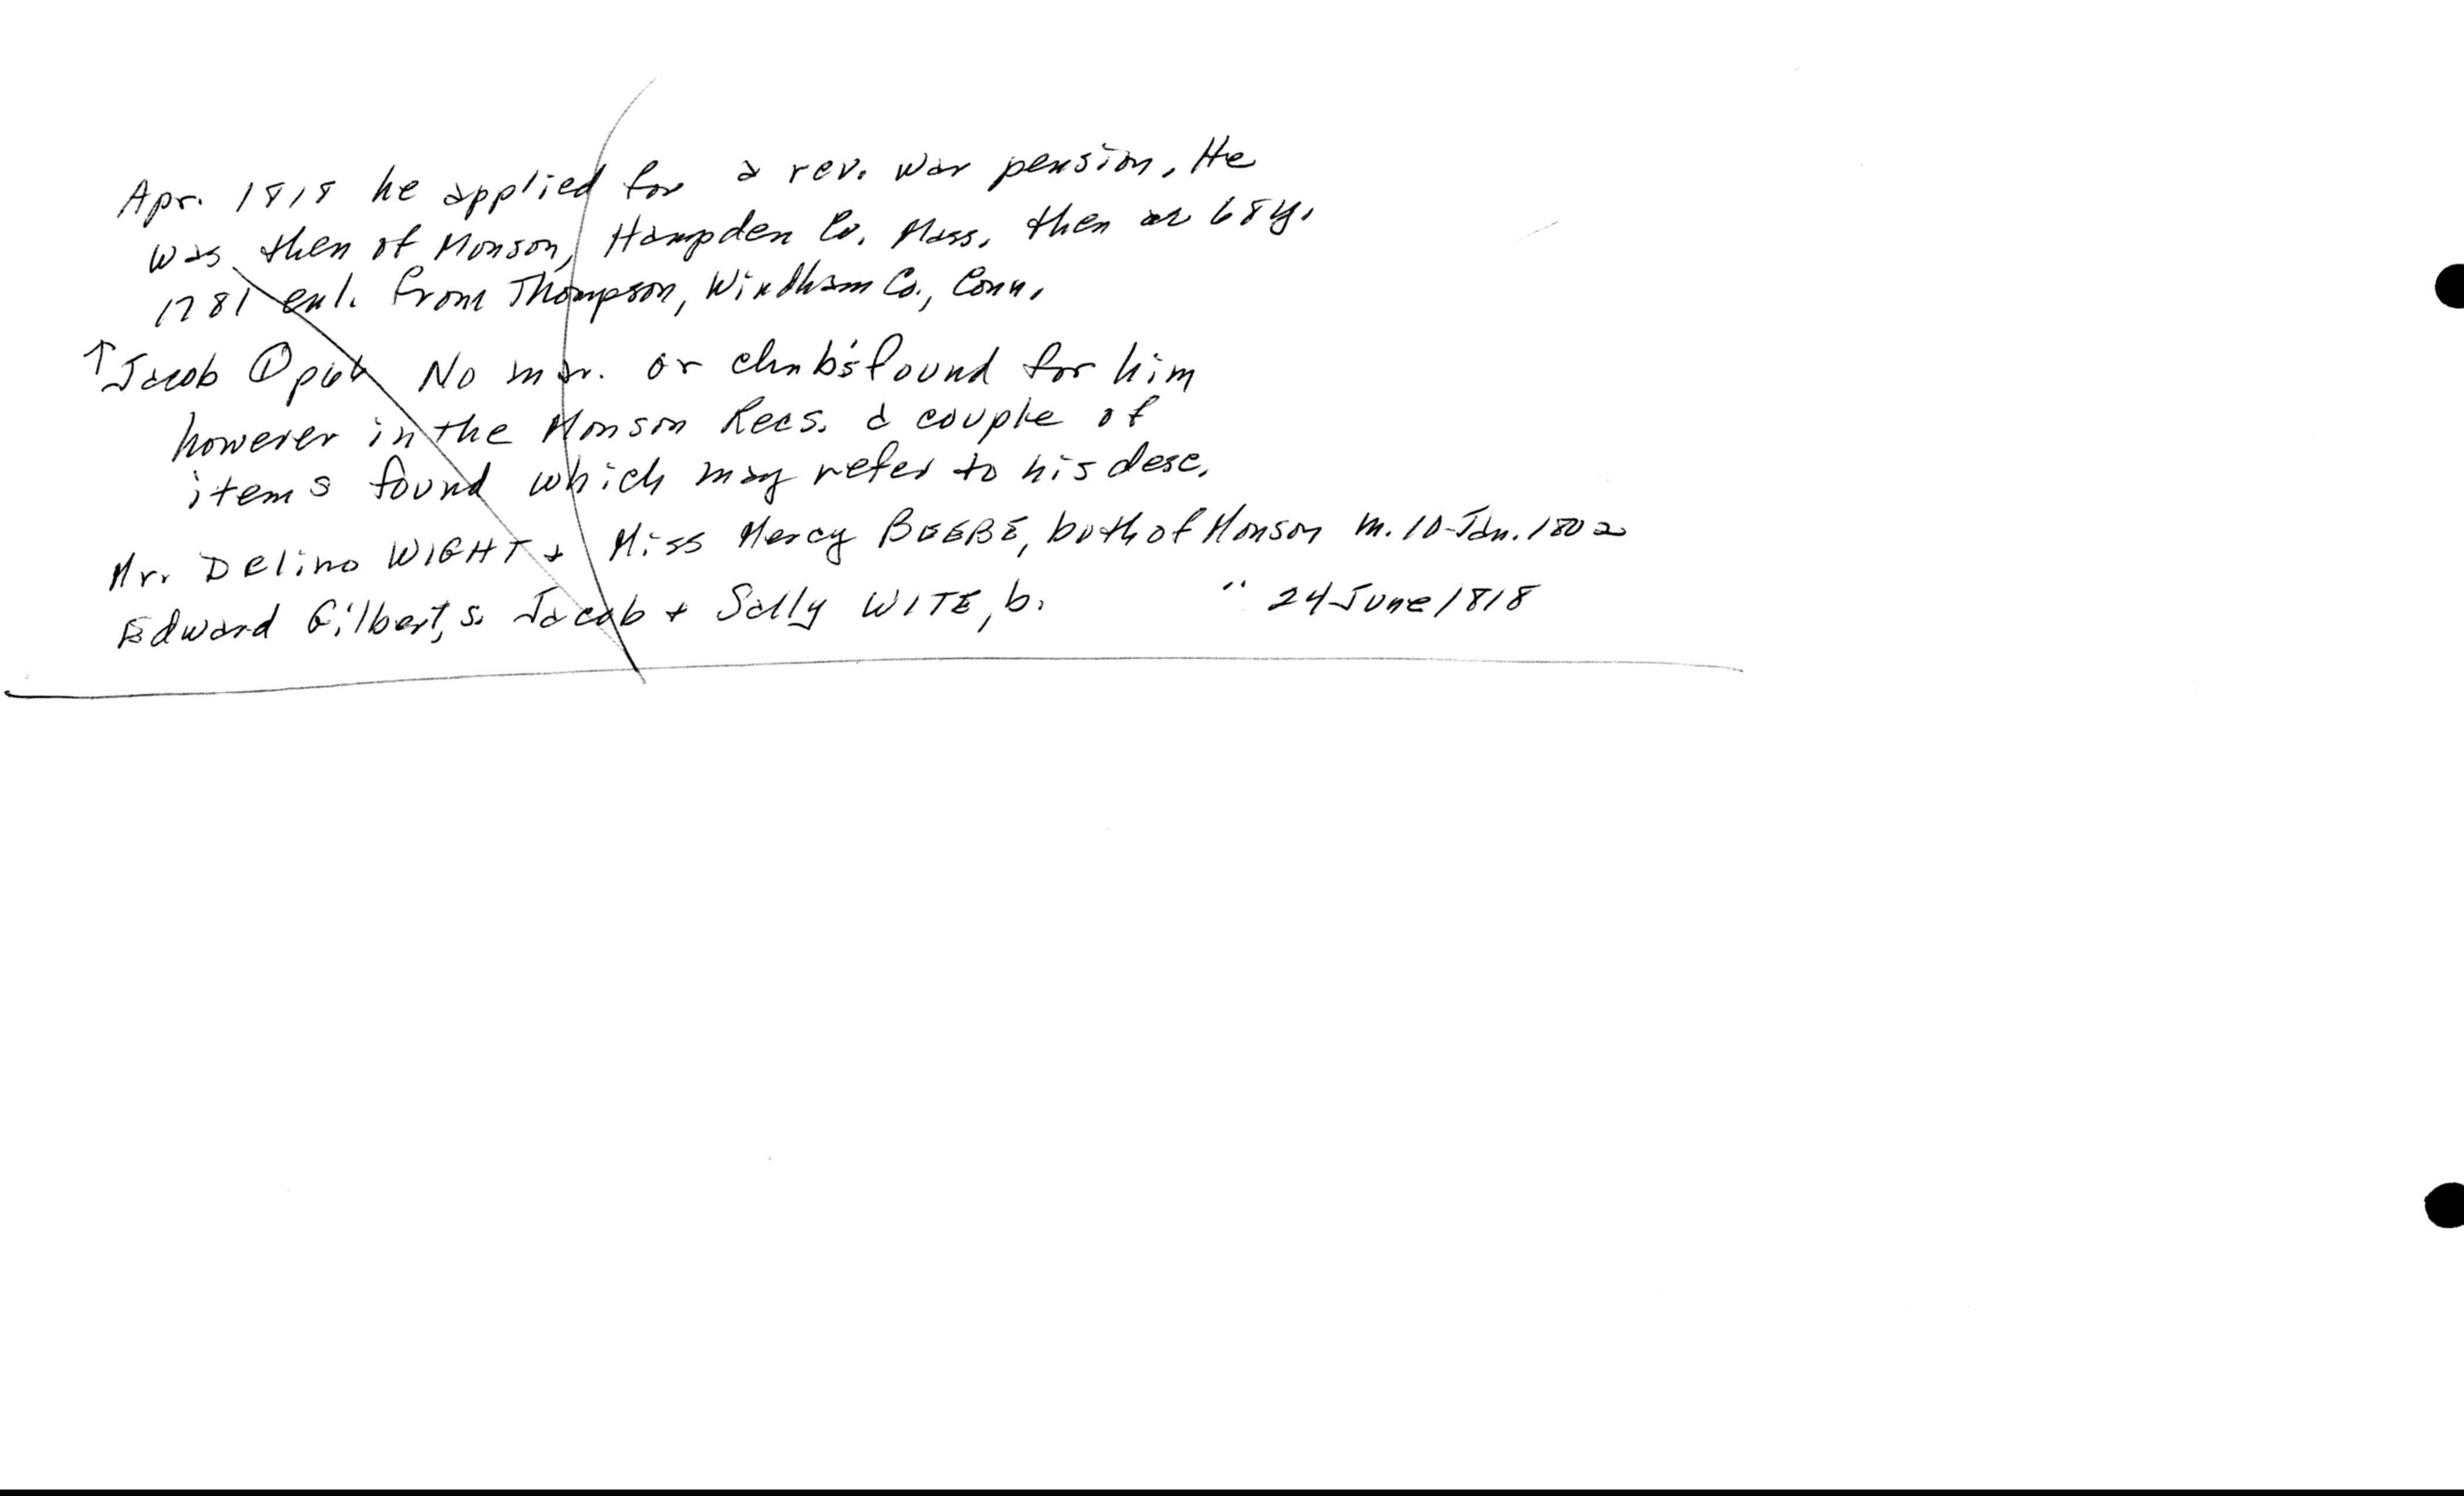 Apr. 1818 he applied for a rev. war pension. He
was then of Monson, Hampden Co. Mass. then ae 68y.
1781 enl. from Thompson, Windham Co., Conn.
↑ Jacob ① No mar. or chn b's found for him
however in the Monson Recs. a couple of
items found which may refer to his desc.
Mr. Delino WIGHT + Miss Mercy BEEBE, both of Monson m. 10 Jan. 1802
Edward Gilbert, s. Jacob + Sally WITE, b. " 24 June 1818